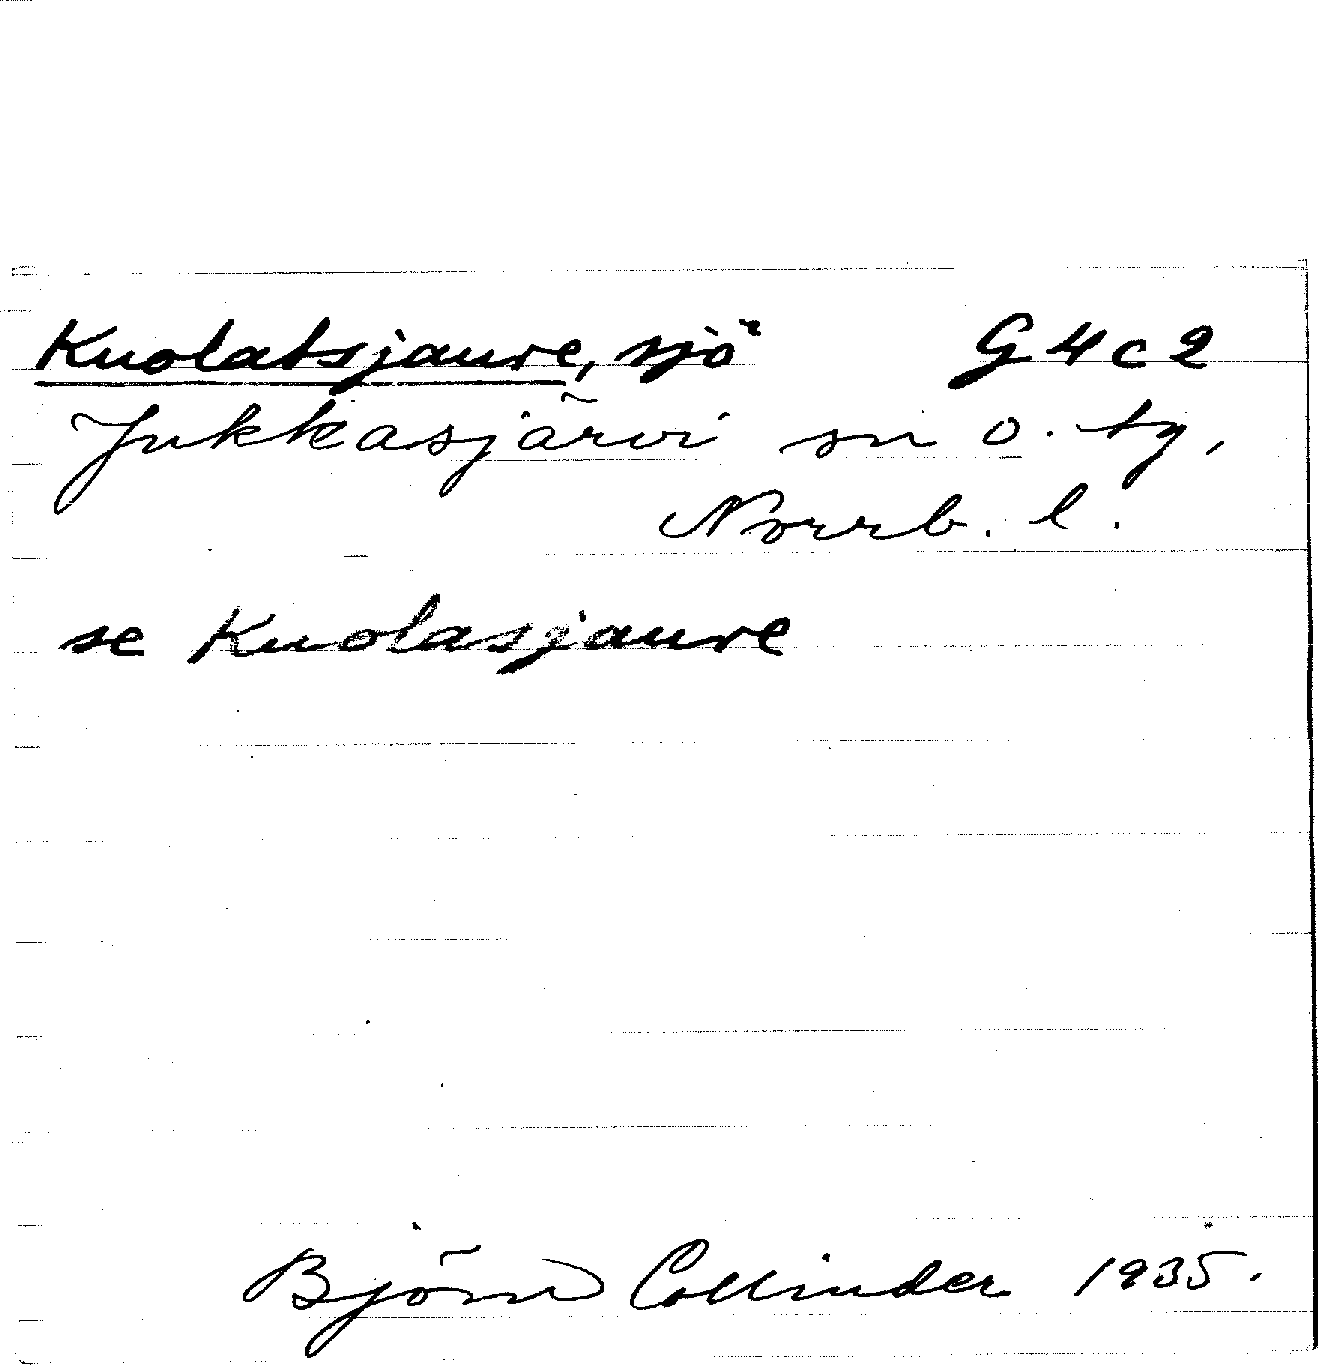 Kuolatsjaure, sjö G4c2
Jukkasjärvi sn o. tg,
Norrb. l.
se Kuolasjaure
Björn Collinder 1935.